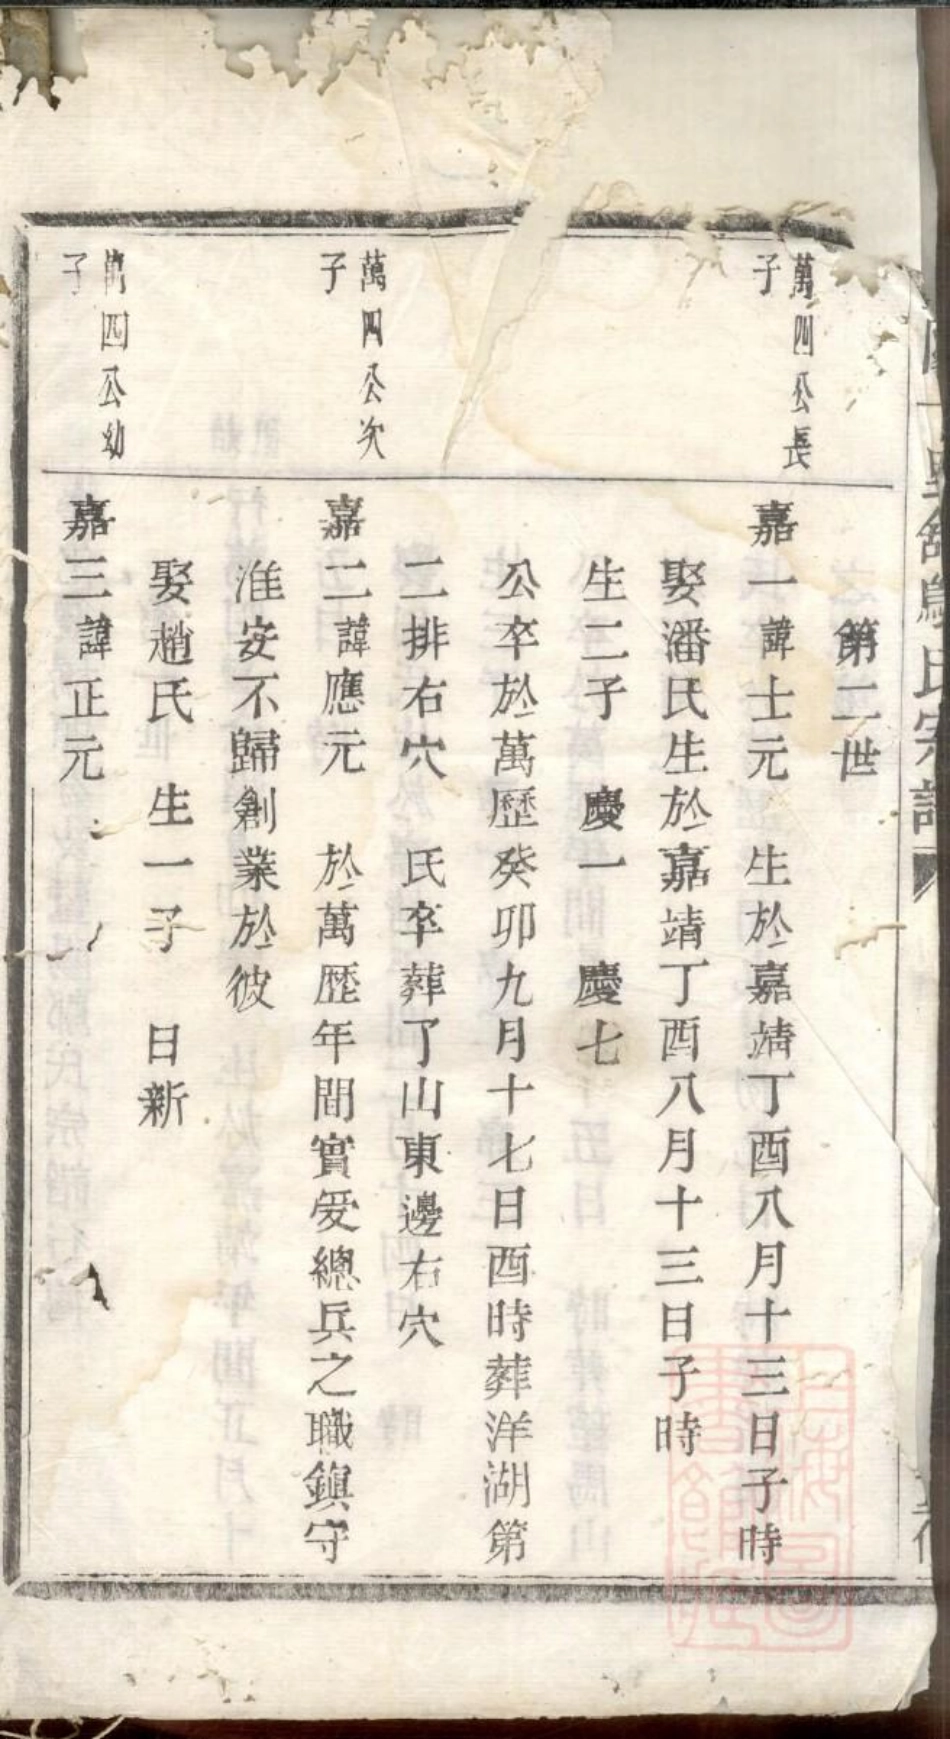 第二世
萬四公長
子
嘉一諱士元 生於嘉靖丁酉八月十三日子時
娶潘氏生於嘉靖丁酉八月十三日子時
生二子 慶一 慶七
公卒於萬歷癸卯九月十七日酉時葬洋湖第
二排右穴 氏卒葬了山東邊右穴
萬四公次
子
嘉二諱應元 於萬歷年間實受總兵之職鎮守
淮安不歸創業於彼
娶趙氏 生一子 日新
萬四公幼
子
嘉三諱正元
氏宗譜
上海圖
書館藏